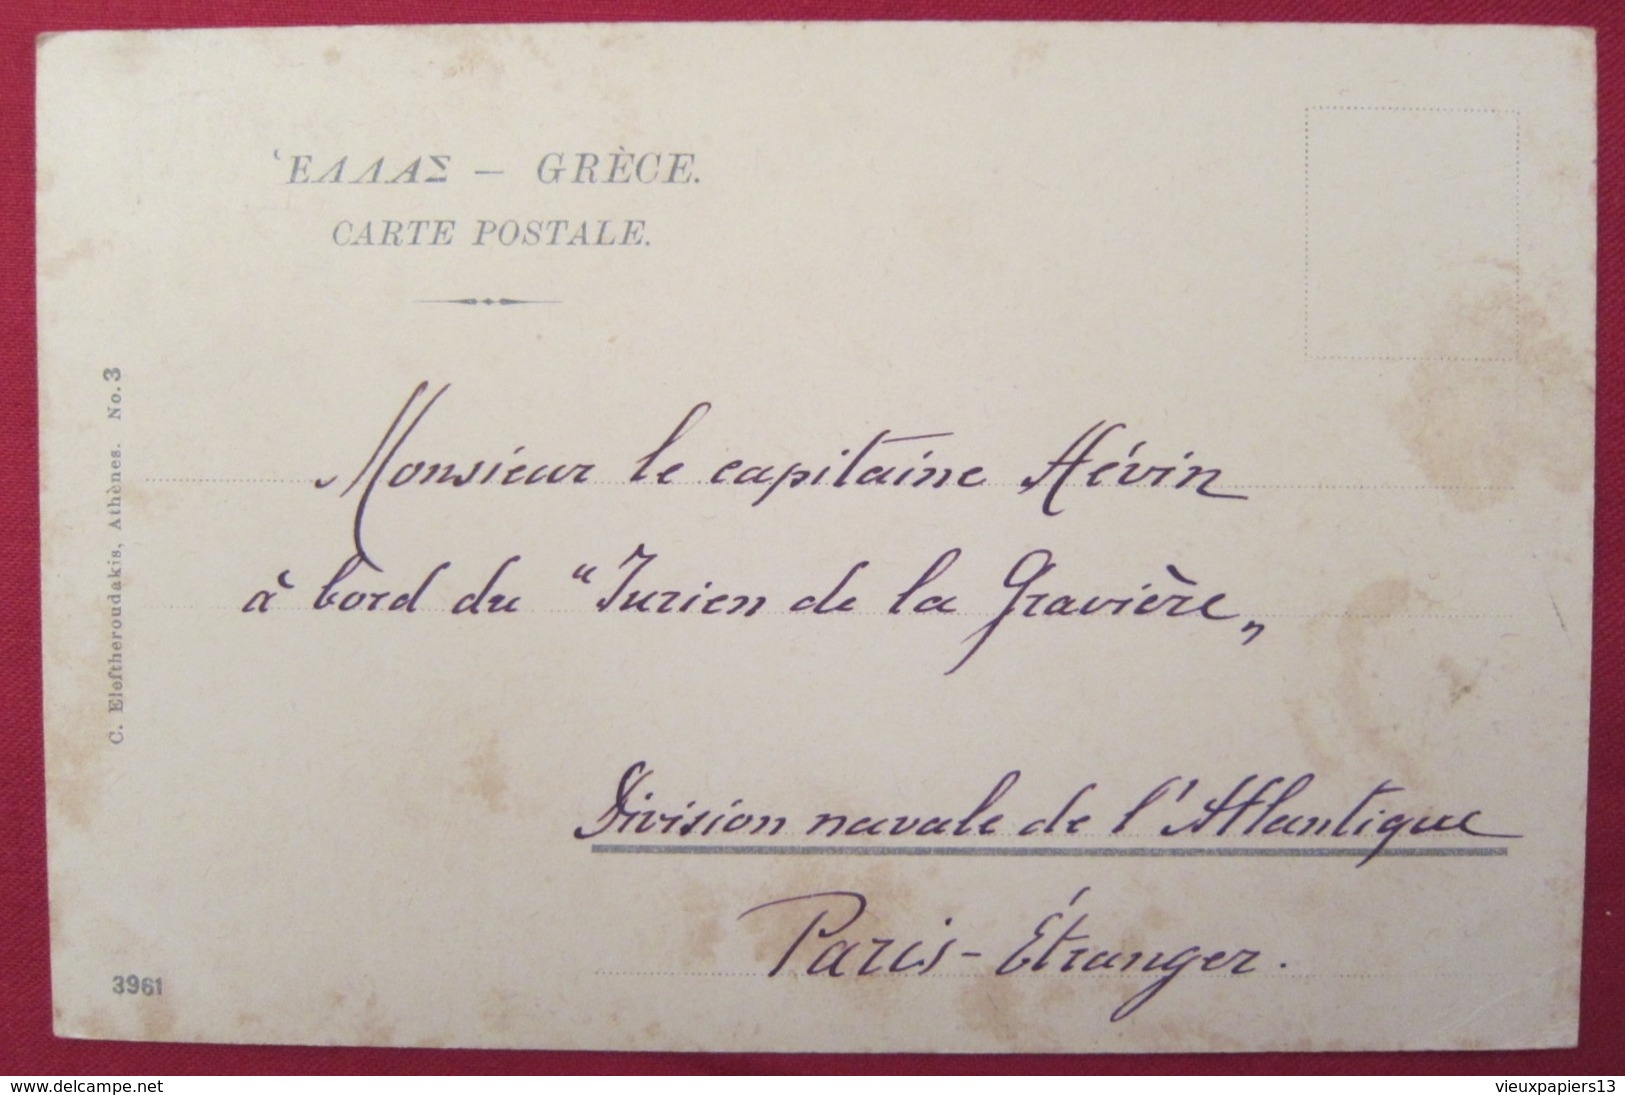 ἙΛΛΑΣ – GRÈCE.
CARTE POSTALE.
C. Eleftheroudakis, Athènes. No. 3
Monsieur le capitaine Hévin
à bord du "Jurien de la Gravière„
Division navale de l'Atlantique
Paris-Étranger.
3961
www.delcampe.net
vieuxpapiers13